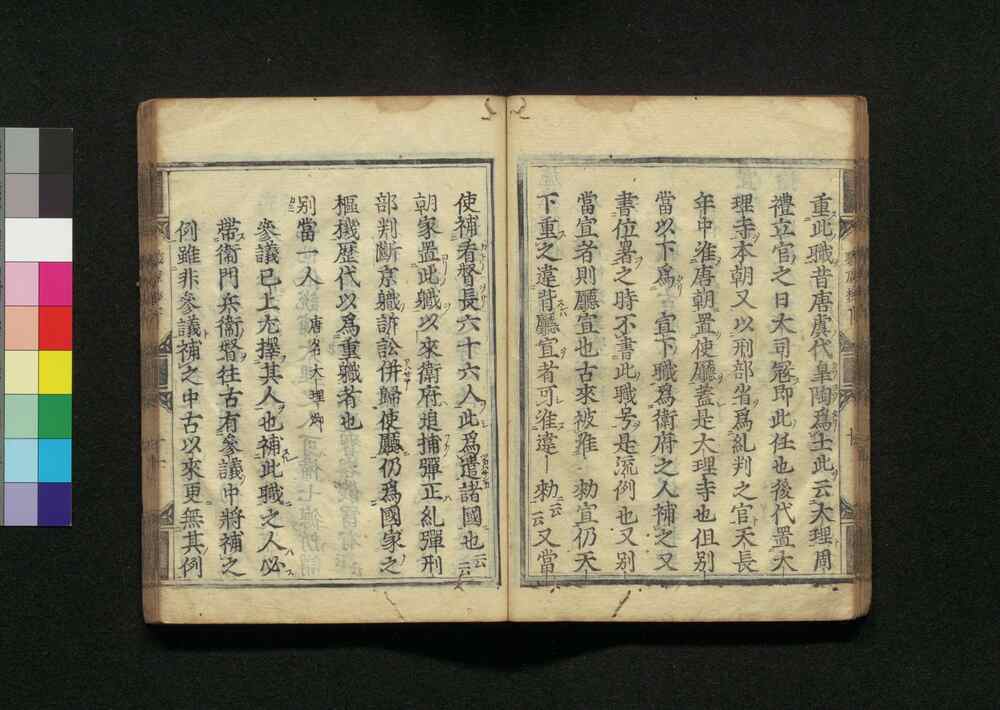 重此職昔唐虞代皐陶爲士此云大理周
禮立官之日大司冦即此任也後代置大
理寺本朝又以刑部省爲糺判之官天長
年中准唐朝置使廳蓋是大理寺也但別
當以下爲宣下職爲衛府之人補之又
書位署之時不書此職号是流例也又別
當宣者則廳宣也古來被准勅宣仍天
下重之違背廳宣者可准違勅云云又當
使補看督長六十六人此爲遣諸國也云云
朝家置此職以來衛府追捕彈正糺彈刑
部判斷京職訴訟併歸使廳仍爲國家之
樞機歴代以爲重職者也
別當一人 唐名大理卿
參議已上尤擇其人也補此職之人必
帶衛門兵衛督往古有參議中將補之
例雖非參議補之中古以來更無其例